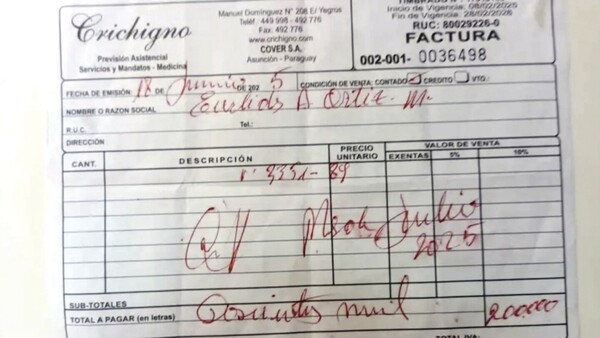 Crichigno
Previsión Asistencial
Servicios y Mandatos - Medicina
Manuel Domínguez N° 208 E/ Yegros
Telef.: 449 998 - 492 776
Fax: 492 776
www.crichigno.com
COVER S.A.
Asunción - Paraguay
Inicio de Vigencia: 08/02/2025
Fin de Vigencia: 28/02/2026
RUC: 80029226-0
FACTURA
002-001- 0036498
FECHA DE EMISIÓN: 18 DE Junio DE 202 5 CONDICIÓN DE VENTA: CONTADO CRÉDITO VTO.:
NOMBRE O RAZON SOCIAL Euclides A Ortiz M.
R.U.C. Tel.:
DIRECCIÓN
CANT. DESCRIPCIÓN PRECIO UNITARIO VALOR DE VENTA
EXENTAS 5% 10%
3351-89
Julio
2025
SUB-TOTALES
TOTAL A PAGAR (en letras) Doscientos mil 200.000
TOTAL IVA: